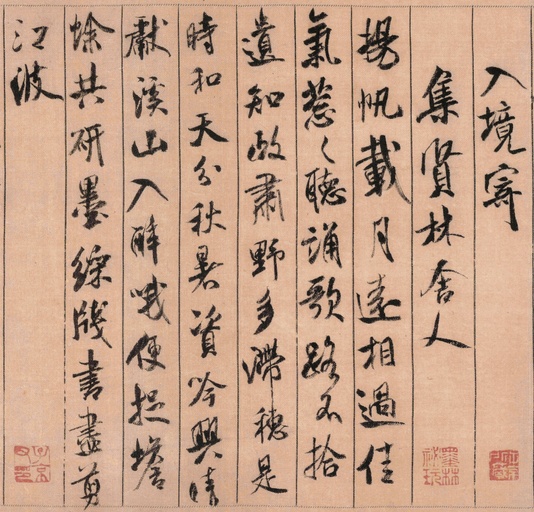 入境寄
集賢林舍人
揚帆載月遠相過佳
氣葱々聽誦歌路不拾
遺知政肅野多滯穗是
時和天分秋暑資吟興晴
獻溪山入醉哦便捉蟾
蜍共研墨綵牋書盡剪
江波
墨林祕玩